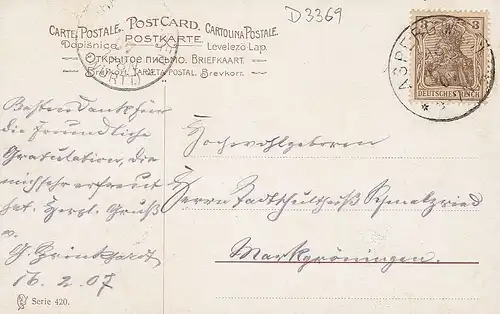 D3369
CARTE POSTALE. POST CARD. CARTOLINA POSTALE.
Dopisnica. POSTKARTE. Levelező Lap.
ОТКРЫТОЕ ПИСЬМО. BRIEFKAART.
Brevkort. TARJETA POSTAL. Brevkorr.
3 3
DEUTSCHES REICH
ASPERG
Besten Dank für
die freundliche
Gratulation, die
mich sehr erfreut
hat. Herzl. Gruß
v.
16. 2. 07
Hochwohlgeboren
Herrn Stadtschultheiß Schmalzried
Markgröningen.
Serie 420.